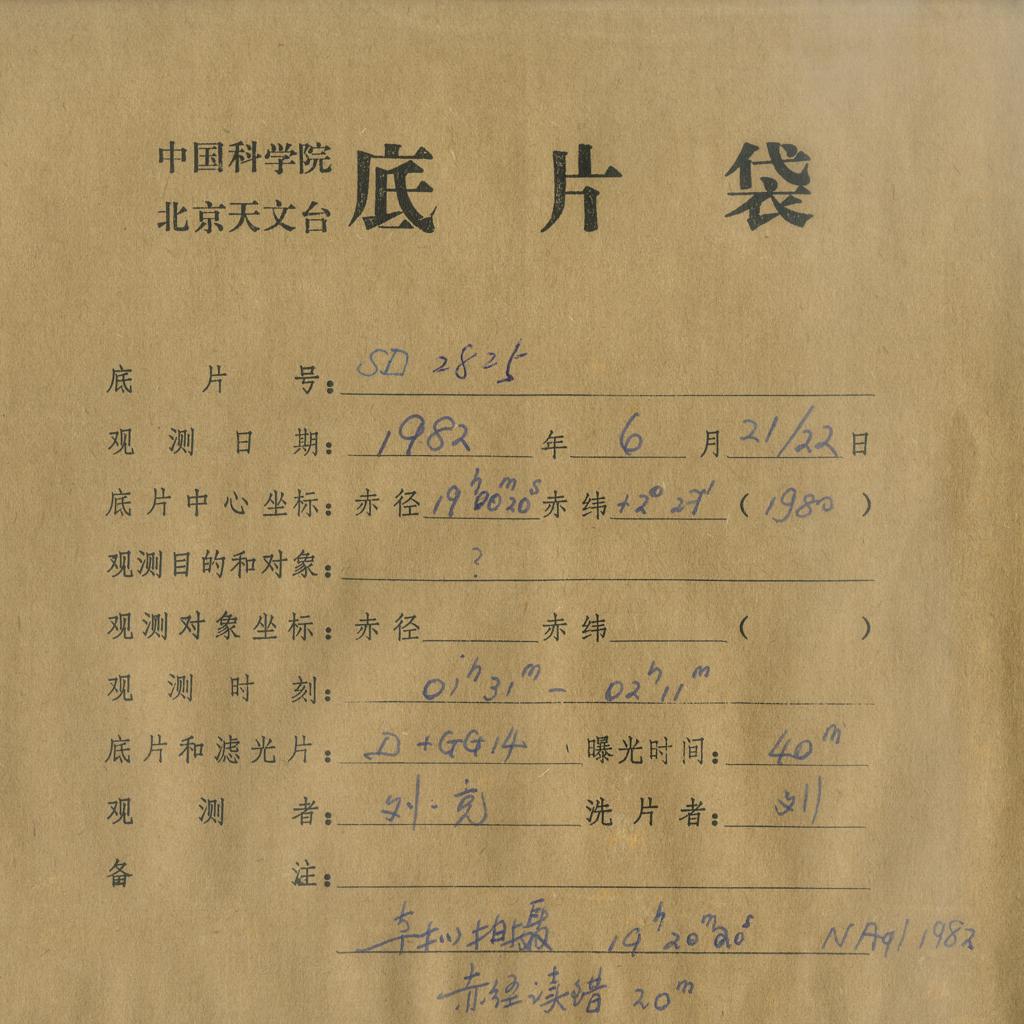 中国科学院
北京天文台
底片袋
底片号: SD 2825
观测日期: 1982 年 6 月 21/22 日
底片中心坐标: 赤径 19ʰ00ᵐ20ˢ 赤纬 +2° 27′ ( 1980 )
观测目的和对象: ?
观测对象坐标: 赤径 赤纬 ( )
观测时刻: 01ʰ31ᵐ - 02ʰ11ᵐ
底片和滤光片: D + GG14 曝光时间: 40ᵐ
观测者: 刘. 竞 洗片者: 刘
备注:
拍摄 19ʰ20ᵐ20ˢ N Aql 1982
赤经读错 20ᵐ